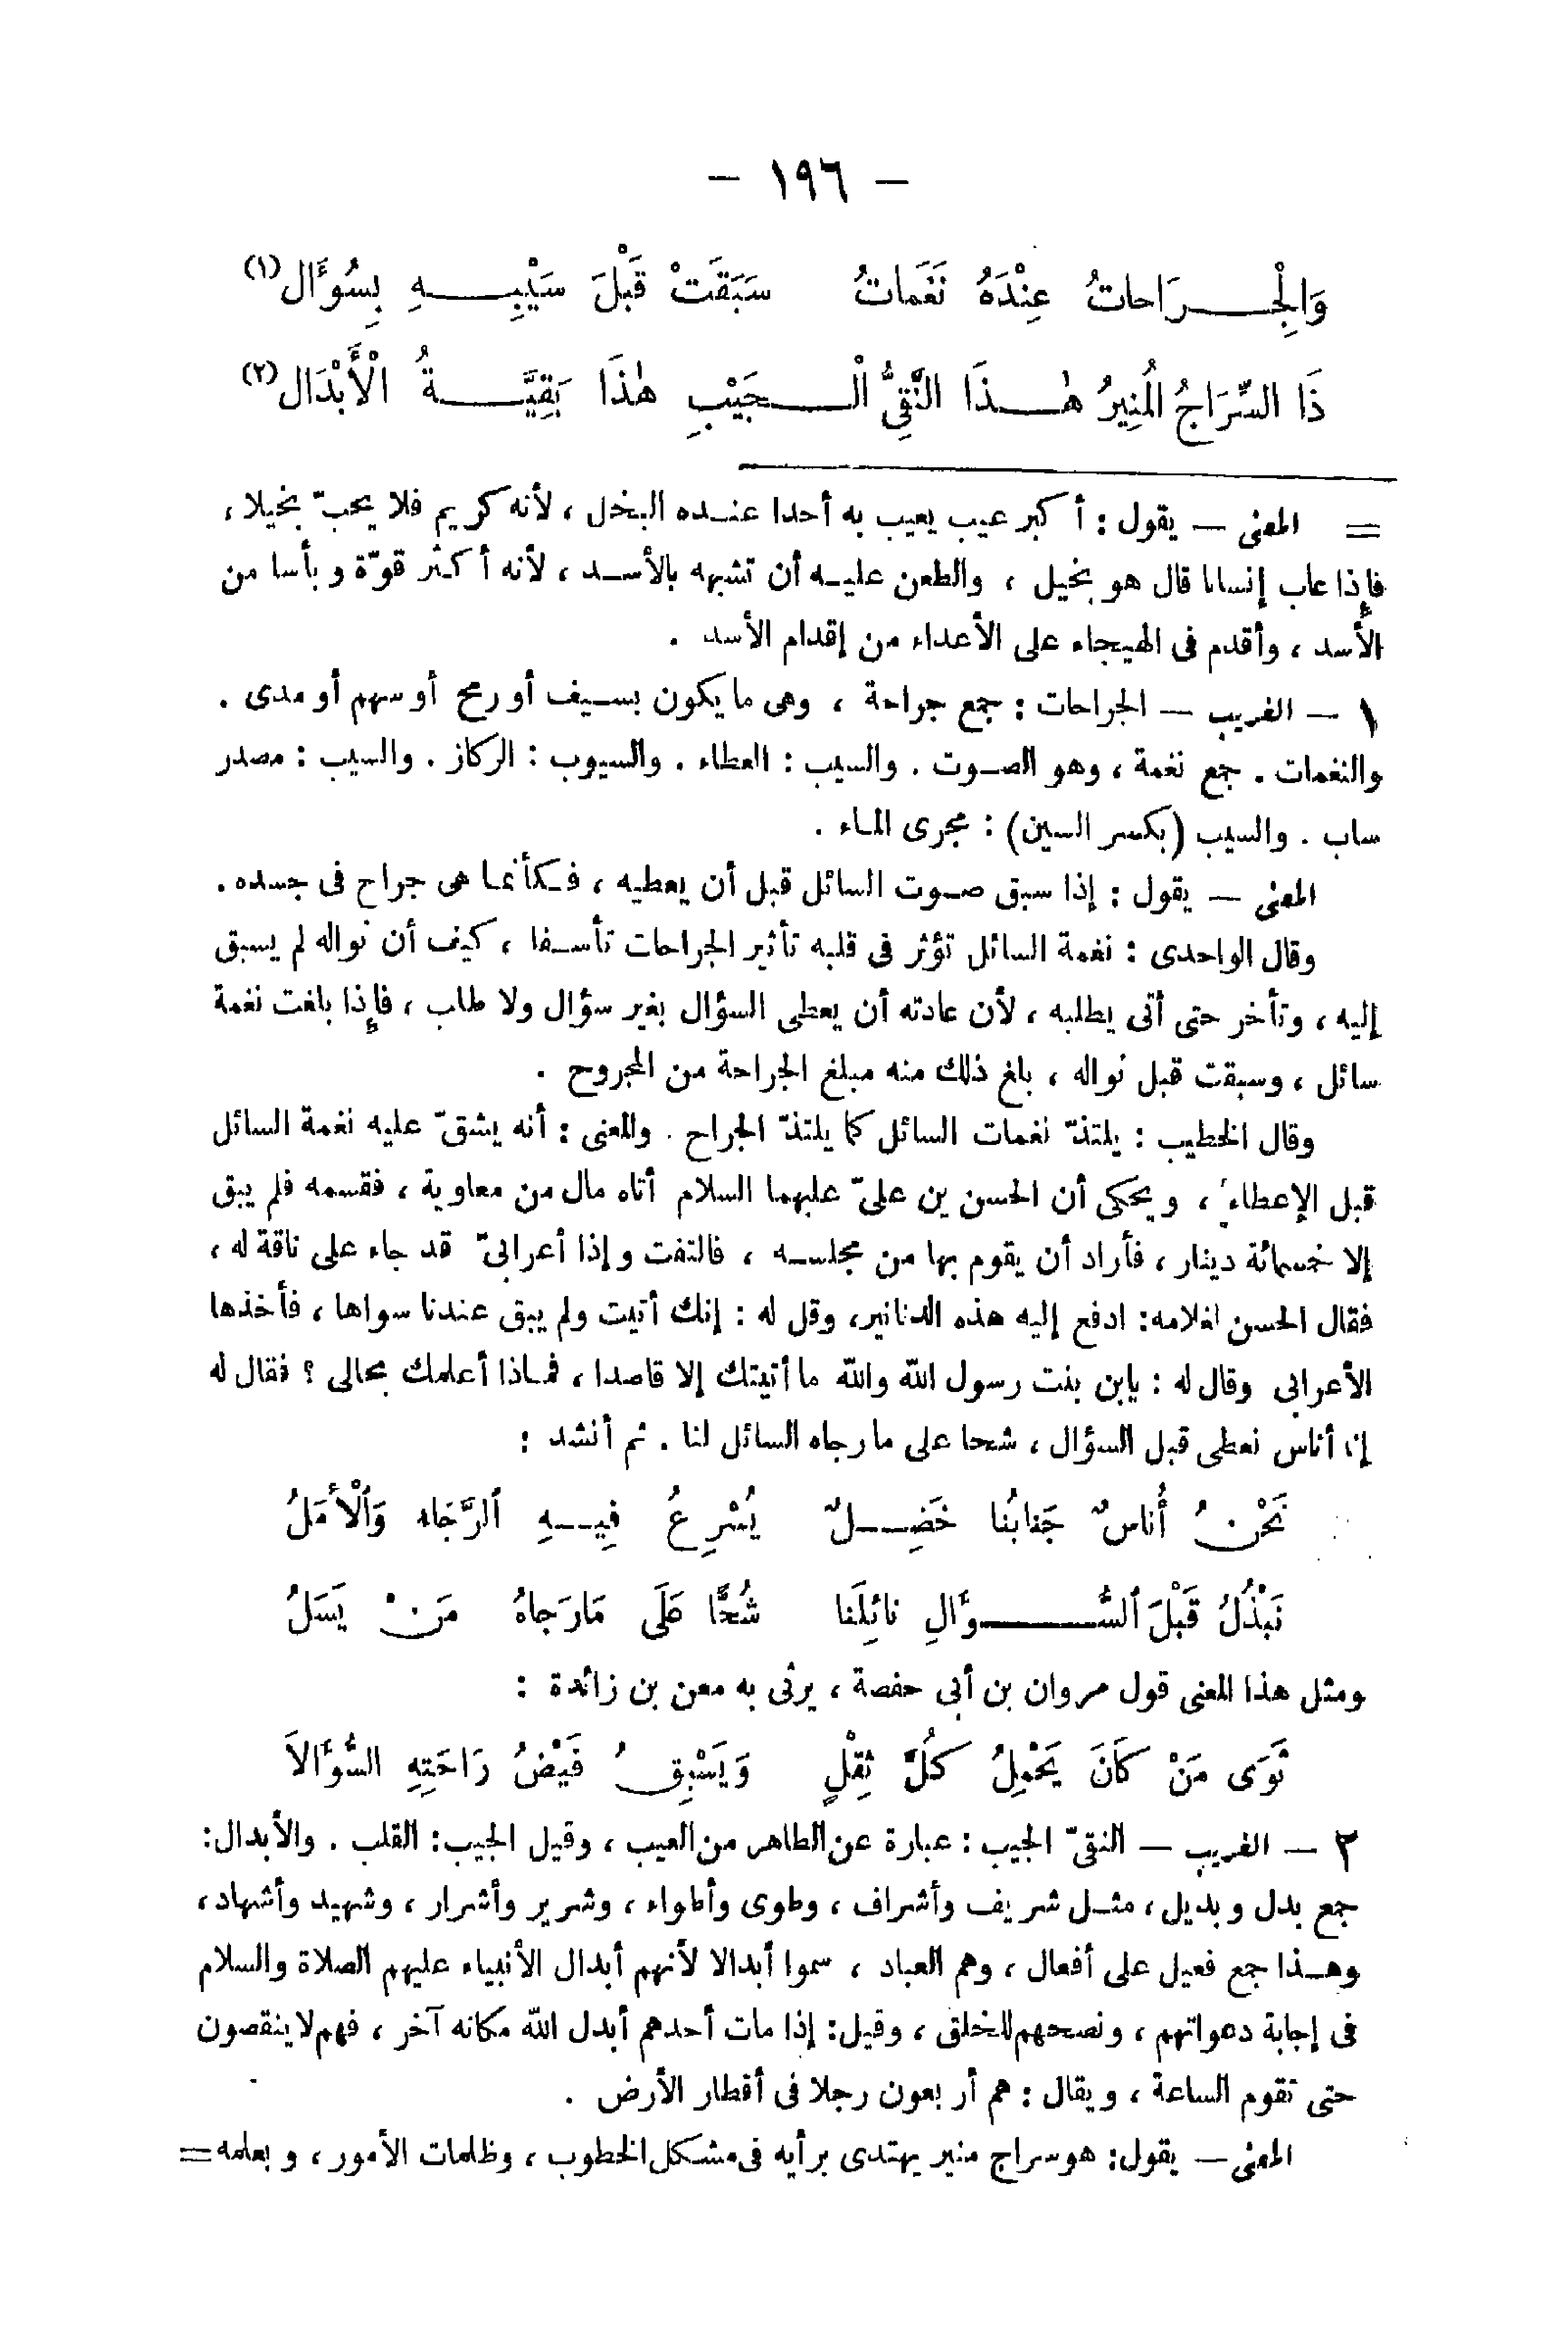 – ١٩٦ –
وَالْجِـرَاحاتُ عِنْدَهُ نَغَماتٌ سَبَقَتْ قَبْلَ سَيْبِـهِ بِسُؤَالِ (١)
ذَا السِّرَاجُ الْمُنِيرُ هٰـذَا النَّقِيُّ الْـجَيْبِ هٰذَا بَقِيَّـةُ الْأَبْدَالِ (٢)
= المعنى — يقول : أكبر عيب يعيب به أحدا عنـده البخل ، لأنه كريم فلا يحبّ بخيلا ،
فإذا عاب إنسانا قال هو بخيل ، والطعن عليـه أن تشبهه بالأسـد ، لأنه أكثر قوّة وبأسا من
الأسد ، وأقدم فى الهيجاء على الأعداء من إقدام الأسد .
١ — الغريب — الجراحات : جمع جراحة ، وهى ما يكون بسـيف أو رمح أو سهم أو مدى .
والنغمات . جمع نغمة ، وهو الصـوت . والسيب : العطاء . والسيوب : الركاز . والسيب : مصدر
ساب . والسيب (بكسر السين) : مجرى المـاء .
المعنى — يقول : إذا سبق صـوت السائل قبل أن يعطيه ، فـكأنمـا هى جراح فى جسده .
وقال الواحدى : نغمة السائل تؤثر فى قلبه تأثير الجراحات تأسـفا ، كيف أن نواله لم يسبق
إليه ، وتأخر حتى أتى يطلبه ، لأن عادته أن يعطى السؤال بغير سؤال ولا طلب ، فإذا بلغت نغمة
سائل ، وسبقت قبل نواله ، بلغ ذلك منه مبلغ الجراحة من المجروح .
وقال الخطيب : يلتذّ نغمات السائل كما يلتذّ الجراح . والمعنى : أنه يشقّ عليه نغمة السائل
قبل الإعطاء ، ويحكى أن الحسن بن علىّ عليهما السلام أتاه مال من معاوية ، فقسمه فلم يبق
إلا خمسمائة دينار ، فأراد أن يقوم بها من مجلسـه ، فالتفت وإذا أعرابىّ قد جاء على ناقة له ،
فقال الحسن لغلامه: ادفع إليه هذه الدنانير، وقل له : إنك أتيت ولم يبق عندنا سواها ، فأخذها
الأعرابى وقال له : يابن بنت رسول الله والله ما أتيتك إلا قاصدا ، فمـاذا أعلمك بحالى ؟ فقال له
إنا أناس نعطى قبل السؤال ، شحا على ما رجاه السائل لنا . ثم أنشد :
نَحْنُ أُناسٌ جَنابُنا خَضِـلٌ يُسْرِعُ فِيـهِ ٱلرَّجَاه وَٱلْأَمَلُ
نَبْذُلُ قَبْلَ ٱلسُّـؤَالِ نائِلَنا شُحًّا عَلَى مَارَجاهُ مَنْ يَسَلُ
ومثل هذا المعنى قول مروان بن أبى حفصة ، يرثى به معن بن زائدة :
ثَوَى مَنْ كَانَ يَحْمِلُ كُلَّ ثِقْلٍ وَيَسْبِقُ فَيْضُ رَاحَتِهِ السُّؤَالاَ
٢ — الغريب — النقىّ الجيب : عبارة عن الطاهر من العيب ، وقيل الجيب: القلب . والأبدال:
جمع بدل وبديل ، مثـل شريف وأشراف ، وطوى وأطواء ، وشرير وأشرار ، وشهيد وأشهاد ،
وهـذا جمع فعيل على أفعال ، وهم العباد ، سموا أبدالا لأنهم أبدال الأنبياء عليهم الصلاة والسلام
فى إجابة دعواتهم ، ونصحهم للخلق ، وقيل: إذا مات أحدهم أبدل الله مكانه آخر ، فهم لا ينقصون
حتى تقوم الساعة ، ويقال : هم أربعون رجلا فى أقطار الأرض .
المعنى — يقول: هو سراج منير يهتدى برأيه فى مشكل الخطوب ، وظلمات الأمور ، وبعلمه =